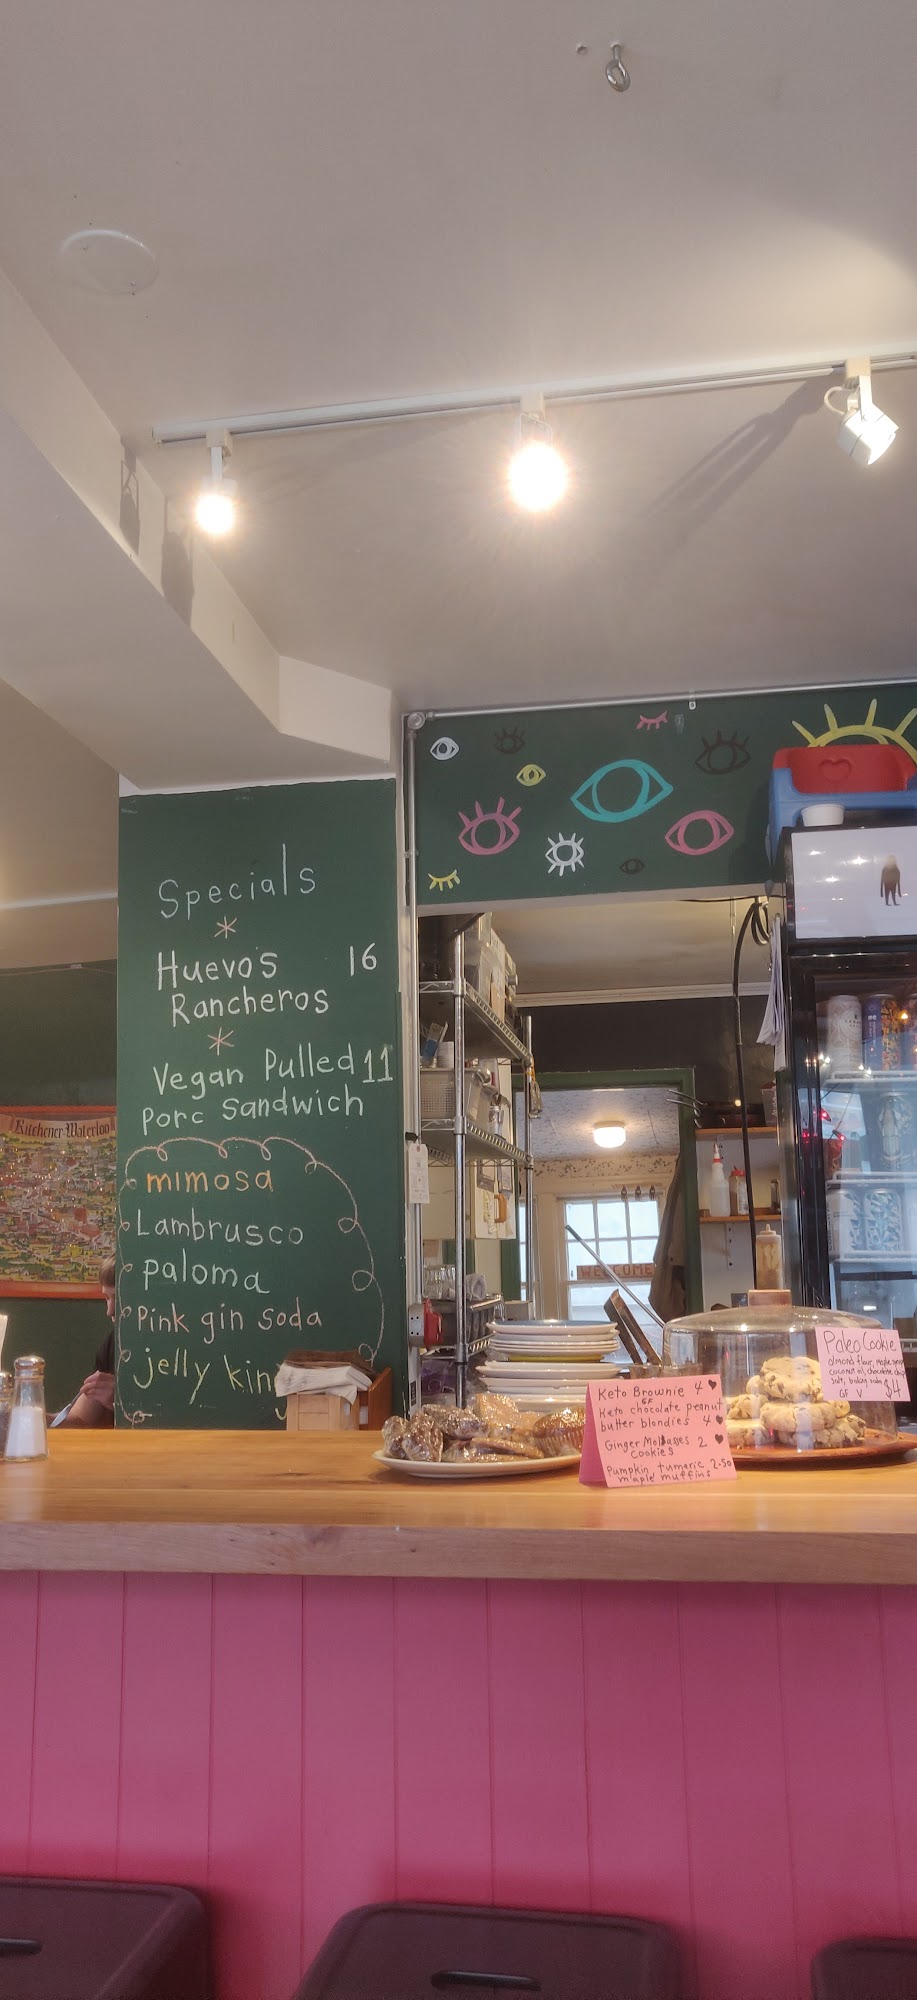 Specials
*
Huevos 16
Rancheros
*
Vegan Pulled 11
Porc Sandwich
mimosa
Lambrusco
paloma
Pink gin soda
jelly
Kitchener-Waterloo
WELCOME
Keto Brownie 4 ♥
GF
Keto chocolate peanut
butter blondies 4 ♥
Ginger Molasses 2 ♥
cookies
Pumpkin tumeric 2.50
maple muffins
Paleo Cookie
almond flour, maple syrup
coconut oil, chocolate chip
salt, baking soda
GF V $4